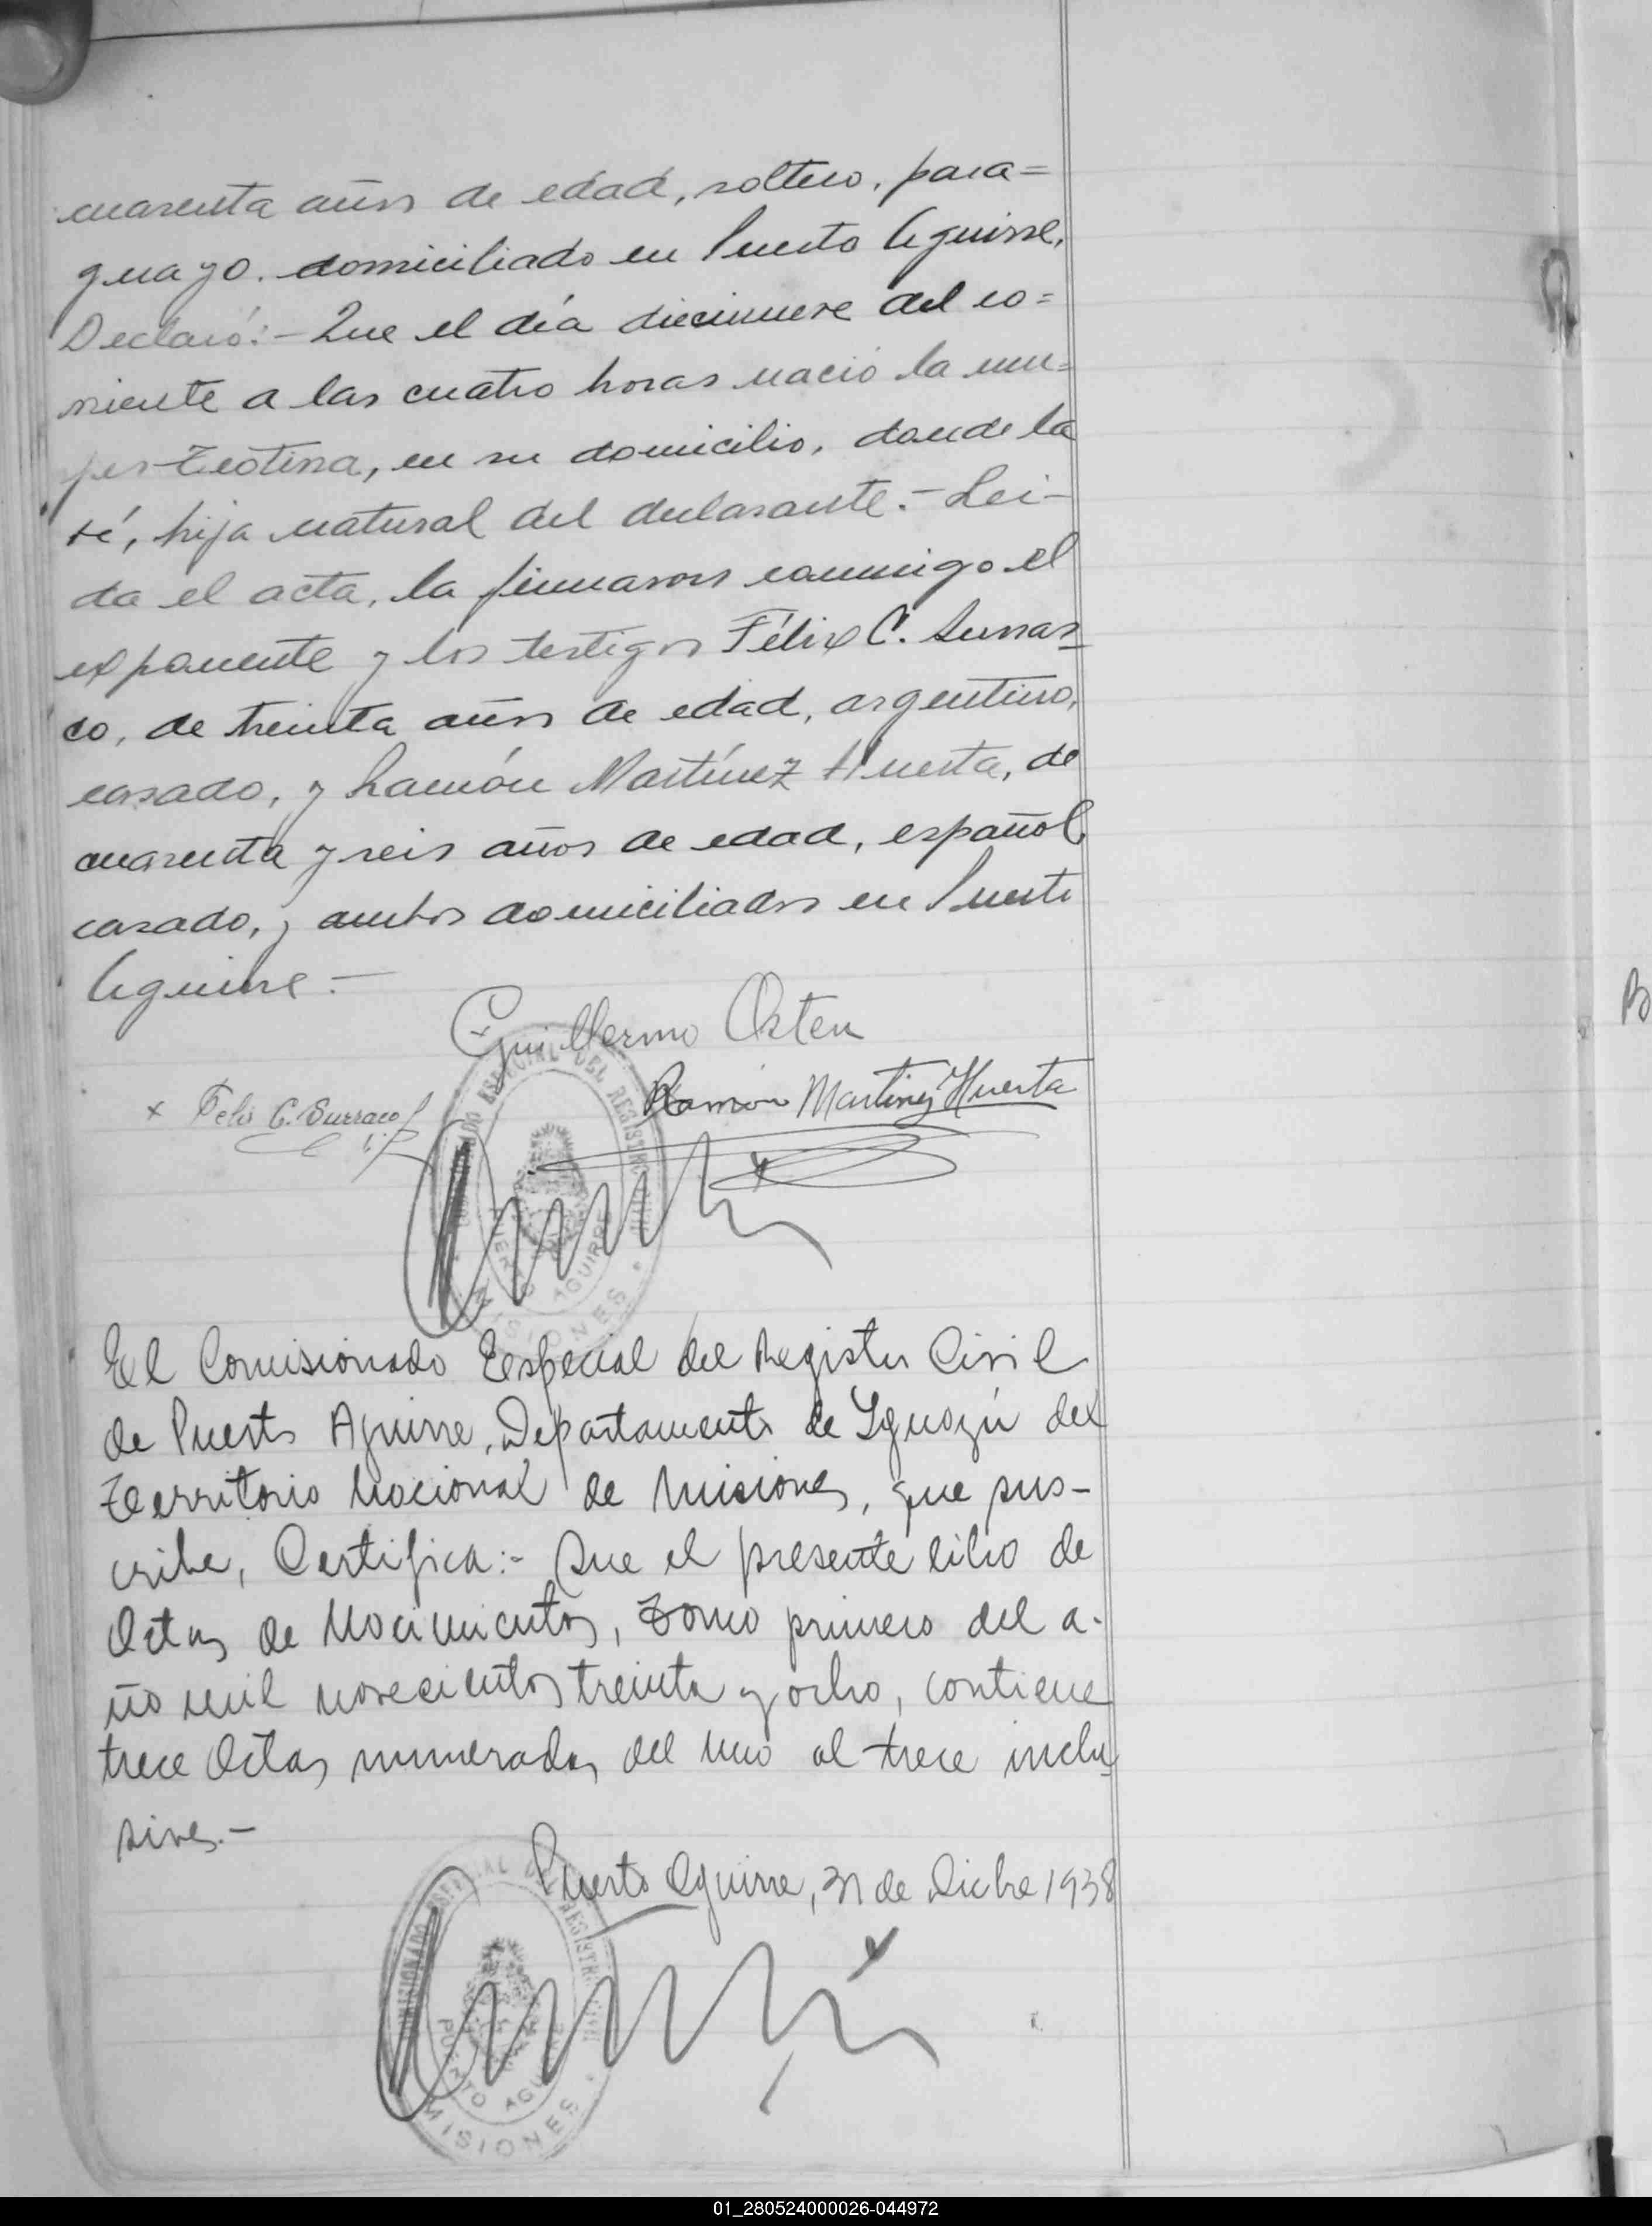 cuarenta años de edad, soltero, para=
guayo. domiciliado en Puerto Aguirre,
Declaró:- Que el día diecinueve del co=
rriente a las cuatro horas nació la mu=
jer Teotina, en su domicilio, donde la
ví, hija natural del declarante.- Leí-
da el acta, la firmaron conmigo el
exponente y los testigos Félix C. Surra=
co, de treinta años de edad, argentino,
casado, y Ramón Martínez Huerta, de
cuarenta y seis años de edad, español,
casado, y ambos domiciliados en Puerto
Aguirre.-
Guillermo Osten
Ramón Martinez Huerta
x Felix C. Surraco
COMISIONADO ESPECIAL DEL REGISTRO CIVIL
PUERTO AGUIRRE
MISIONES
El Comisionado Especial del Registro Civil
de Puerto Aguirre, Departamento de Iguazú del
Territorio Nacional de Misiones, que sus-
cribe, Certifica:- Que el presente libro de
Actas de Nacimientos, Tomo primero del a-
ño mil novecientos treinta y ocho, contiene
trece Actas numeradas del uno al trece inclu
sives.-
Puerto Aguirre, 31 de Dicbre 1938
COMISIONADO ESPECIAL DEL REGISTRO CIVIL
PUERTO AGUIRRE
MISIONES
01_280524000026-044972